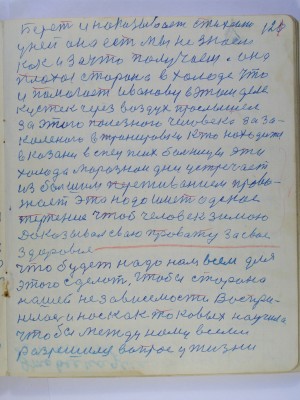 берет и показывает стихами 128
у ней она ест мы не знаем
как и за что получаем. она
плохая сторона в холоде что
и помогает иванову в этом деле
кустик через воздух просившего
за этого полезного человека за за-
каленого в тренировки кто находится
в казани в спец псих больницы эти
холода морозной дни встречает
из большим переживанием прово-
жает это надо имет оденое
терпение чтоб человек зимою
доказывал свою правату за свое
здоровья
что будет надо нам всем для
этого сделат, чтобы сторона
нашей независемости воспри-
нилас и нас как таковых научила
чтобы между нами всеми
разрешила вопрос у жизни